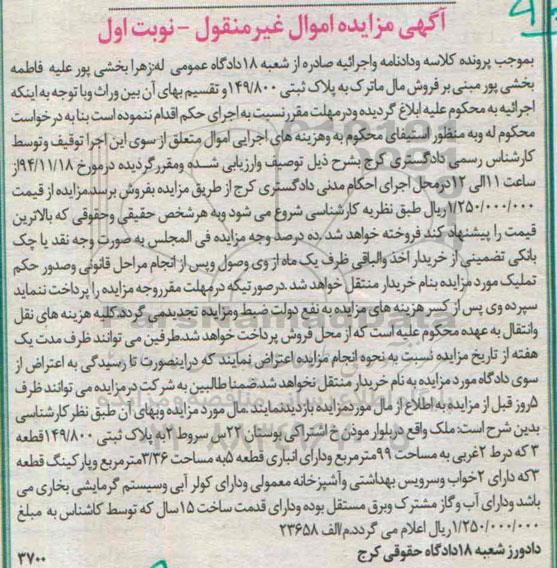 آگهی مزایده اموال غیرمنقول - نوبت اول
بموجب پرونده کلاسه ودادنامه واجرائیه صادره از شعبه ۱۸دادگاه عمومی له:زهرا بخشی پور علیه فاطمه
بخشی پور مبنی بر فروش مال ماترک به پلاک ثبتی ۱۴۹/۸۰۰و تقسیم بهای آن بین وراث وبا توجه به اینکه
اجرائیه به محکوم علیه ابلاغ گردیده ودرمهلت مقررنسبت به اجرای حکم اقدام ننموده است بنا به درخواست
محکوم له وبه منظور استیفای محکوم به وهزینه های اجرایی اموال متعلق از سوی این اجرا توقیف وتوسط
کارشناس رسمی دادگستری کرج بشرح ذیل توصیف وارزیابی شده ومقررگردیده درمورخ ۹۴/۱۱/۱۸از
ساعت ۱۱الی ۱۲درمحل اجرای احکام مدنی دادگستری کرج از طریق مزایده بفروش برسد.مزایده از قیمت
۱/۲۵۰/۰۰۰/۰۰۰ریال طبق نظریه کارشناسی شروع می شود وبه هرشخص حقیقی وحقوقی که بالاترین
قیمت را پیشنهاد کند فروخته خواهد شد.ده درصد وجه مزایده فی المجلس به صورت وجه نقد یا چک
بانکی تضمینی از خریدار اخذ والباقی ظرف یک ماه از وی وصول وپس از انجام مراحل قانونی وصدور حکم
تملیک مورد مزایده بنام خریدار منتقل خواهد شد.درصورتیکه درمهلت مقرروجه مزایده را پرداخت ننماید
سپرده وی پس از کسر هزینه های مزایده به نفع دولت ضبط ومزایده تجدیدمی گردد.کلیه هزینه های نقل
وانتقال به عهده محکوم علیه است که از محل فروش پرداخت خواهد شد.طرفین می توانند ظرف مدت یک
هفته از تاریخ مزایده نسبت به نحوه انجام مزایده اعتراض نمایند که دراینصورت تا رسیدگی به اعتراض از
سوی دادگاه مورد مزایده به نام خریدار منتقل نخواهد شد.ضمنا طالبین به شرکت درمزایده می توانند ظرف
۵روز قبل از مزایده به اطلاع از مال موردمزایده بازدیدنمایند.مال مورد مزایده وبهای آن طبق نظر کارشناسی
بدین شرح است: ملک واقع دربلوار موذن خ اشتراکی بوستان ۲۲س سروط۲به پلاک ثبتی ۱۴۹/۸۰۰قطعه
۳ که درط ۲غربی به مساحت ۹۹مترمربع ودارای انباری قطعه ۵به مساحت ۳/۳۶مترمربع وپارکینگ قطعه
۳که دارای ۲خواب وسرویس بهداشتی وآشپزخانه معمولی ودارای کولر آبی وسیستم گرمایشی بخاری می
باشد ودارای آب وگاز مشترک وبرق مستقل بوده ودارای قدمت ساخت ۱۵سال که توسط کاشناس به مبلغ
۱/۲۵۰/۰۰۰/۰۰۰ریال اعلام می گردد.م/الف ۲۳۶۵۸
دادورز شعبه ۱۸دادگاه حقوقی کرج
۳۷۰۰